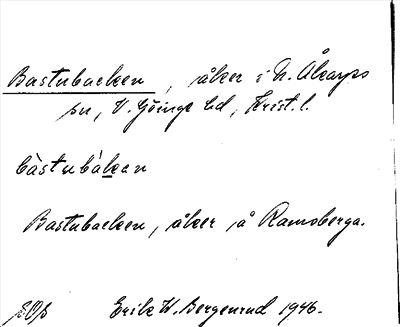 Bastubacken, åker i N. Åkarps
sn, V. Göinge hd, Krist. l.
bàstubàkan
Bastubacken, åker å Ramsberga.
Erik W. Bergenrud 1946.